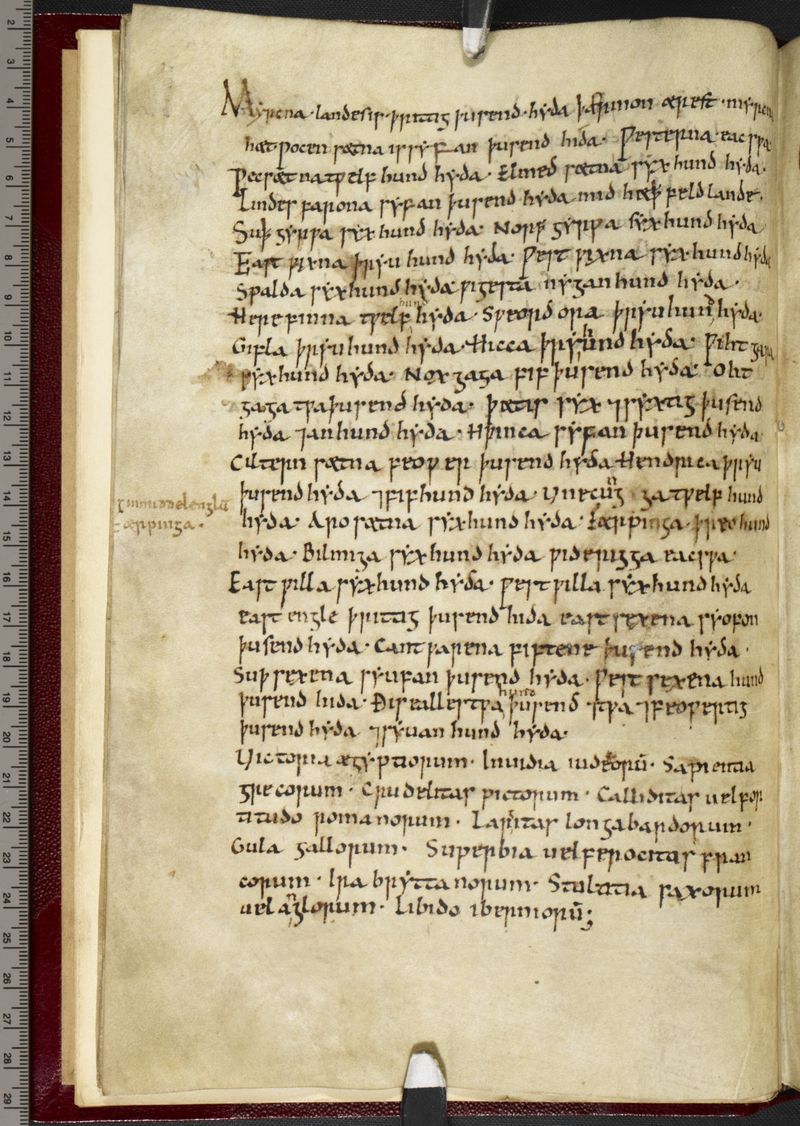 Myrcna landes is þrittig þusend hyda þær mon ærest myrcna
hæt. pocen sætna is syfan þusend hida. Ƿesterna eac sƿa.
Pecsætna tƿelf hund hyda. Elmed sætna syx hund hyda.
Lindes farona syfan þusend hyda mid hæþ feld lande.
Suþ gyrƿa syx hund hyda. Norþ gyrƿa syx hund hyda
East ƿixna þryu hund hyda. Ƿest ƿixna syx hund hyda
Spalda syx hund hyda. ƿigesta nygan hund hyda.
Herefinna tƿelf hund hyda. Sƿeord ora þryu hund hyda.
Gifla þryu hund hyda. Hicca þryu hund hyda. Ƿiht gara
syx hund hyda. Nox gaga fif þusend hyda. Oht
gaga tƿa þusend hyda. þæt is syx ⁊ syxtig þusend
hyda ⁊ an hund hyda. Hƿinca syfan þusend hyda
Ciltern sætna feoƿer þusend hyda. Hendrica þryu
þusend hyda ⁊ fif hund hyda. Unecungga tƿelf hund
hyda. Aro sætna syx hund hyda. Færpinga þreo hund
hyda. Bilmiga syx hund hyda ƿiderigga eac sƿa.
East ƿilla syx hund hyda. Ƿest ƿilla syx hund hyda
east engle þrittig þusend hida east sexena syofon
þusend hyda. Cantƿarena fiftene þusend hyda.
Suþ sexena syufan þusend hyda. Ƿest sexena hund
þusend hida. Ðis ealles tƿa hund þusend ⁊ tƿa ⁊ feoƿertig
þusend hyda ⁊ syuan hund hyda.
Uictoria ægyptiorum. Inuidia iudeorū. Sapientia
grecorum. Crudelitas pictorum. Calliditas uel for
titudo romanorum. Largitas longabardorum.
Gula gallorum. Superbia uel ferocitas fran
corum. Ira bryttanorum. Stultitia saxorum
uel anglorum. Libido iberniorū;
is in middelengla
færpinga.
2
3
4
5
6
7
8
9
10
11
12
13
14
15
16
17
18
19
20
21
22
23
24
25
26
27
28
29